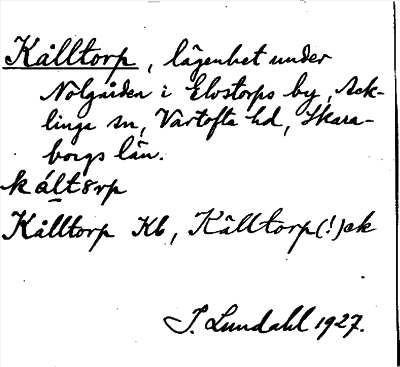 Kålltorp, lägenhet under
Nolgården i Elvstorps by, Ack-
linga sn, Vartofta hd, Skara-
borgs län.
kålltorp
Kålltorp Kb, Källtorp (!) ek
I. Lundahl 1927.